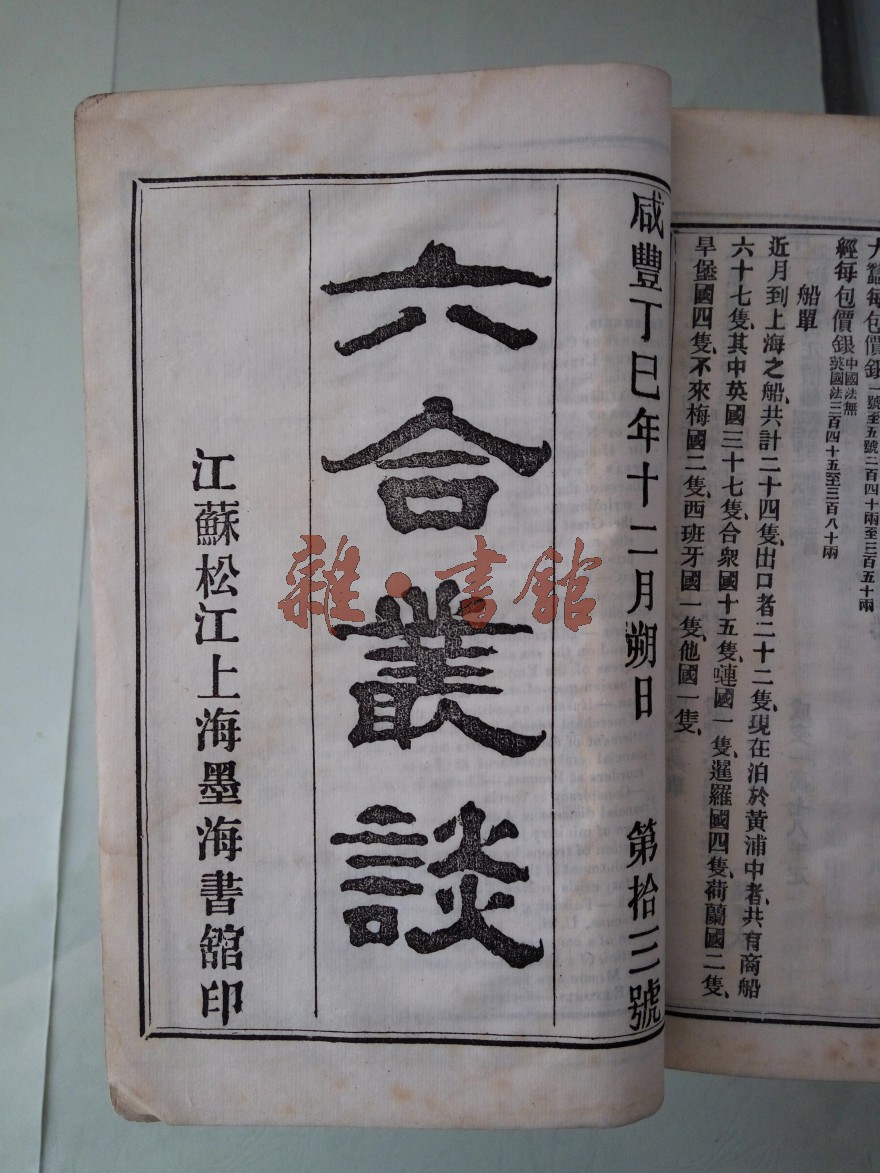 大蠶每包價銀一號至五號二百四十兩至三百五十兩
經每包價銀中國法無英國法三百四十五至三百八十兩
船單
近月到上海之船、共計二十四隻、出口者二十二隻、現在泊於黃浦中者、共有商船
六十七隻、其中英國三十七隻、合衆國十五隻、嗹國一隻、暹羅國四隻、荷蘭國二隻、
旱堡國四隻、不來梅國二隻、西班牙國一隻、他國一隻、
咸豐丁巳年十二月朔日 第拾三號
六合叢談
江蘇松江上海墨海書舘印
雜·書舘